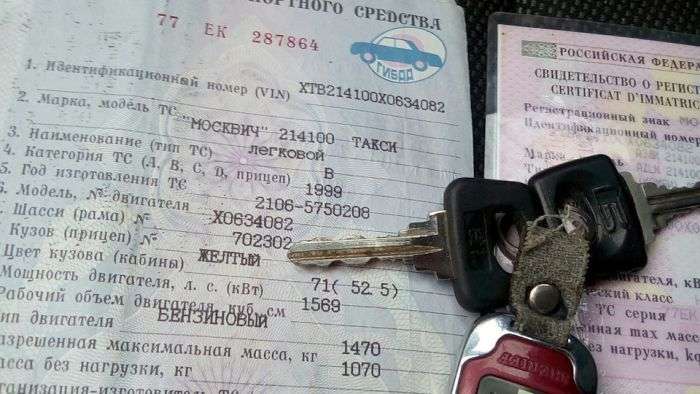 ПОРТНОГО СРЕДСТВА
77 ЕК 287864
ГИБДД
1. Идентификационный номер (VIN) XTB214100X0634082
2. Марка, модель ТС "МОСКВИЧ" 214100 ТАКСИ
3. Наименование (тип ТС) ЛЕГКОВОЙ
4. Категория ТС (A, B, C, D, прицеп) B
5. Год изготовления ТС 1999
6. Модель, № двигателя 2106-5750208
7. Шасси (рама) № X0634082
Кузов (прицеп) № 702302
Цвет кузова (кабины) ЖЕЛТЫЙ
Мощность двигателя, л. с. (кВт) 71( 52.5)
Рабочий объем двигателя, куб. см 1569
ип двигателя БЕНЗИНОВЫЙ
азрешенная максимальная масса, кг 1470
асса без нагрузки, кг 1070
ганизация-изготовитель ТС
РОССИЙСКАЯ ФЕДЕРА
СВИДЕТЕЛЬСТВО О РЕГИСТ
CERTIFICAT D'IMMATRIC
Регистрационный знак
Идентификационный номер
Марка
двигателя, кВ
еский класс
ТС серия
нная max масс
нагрузки, kg